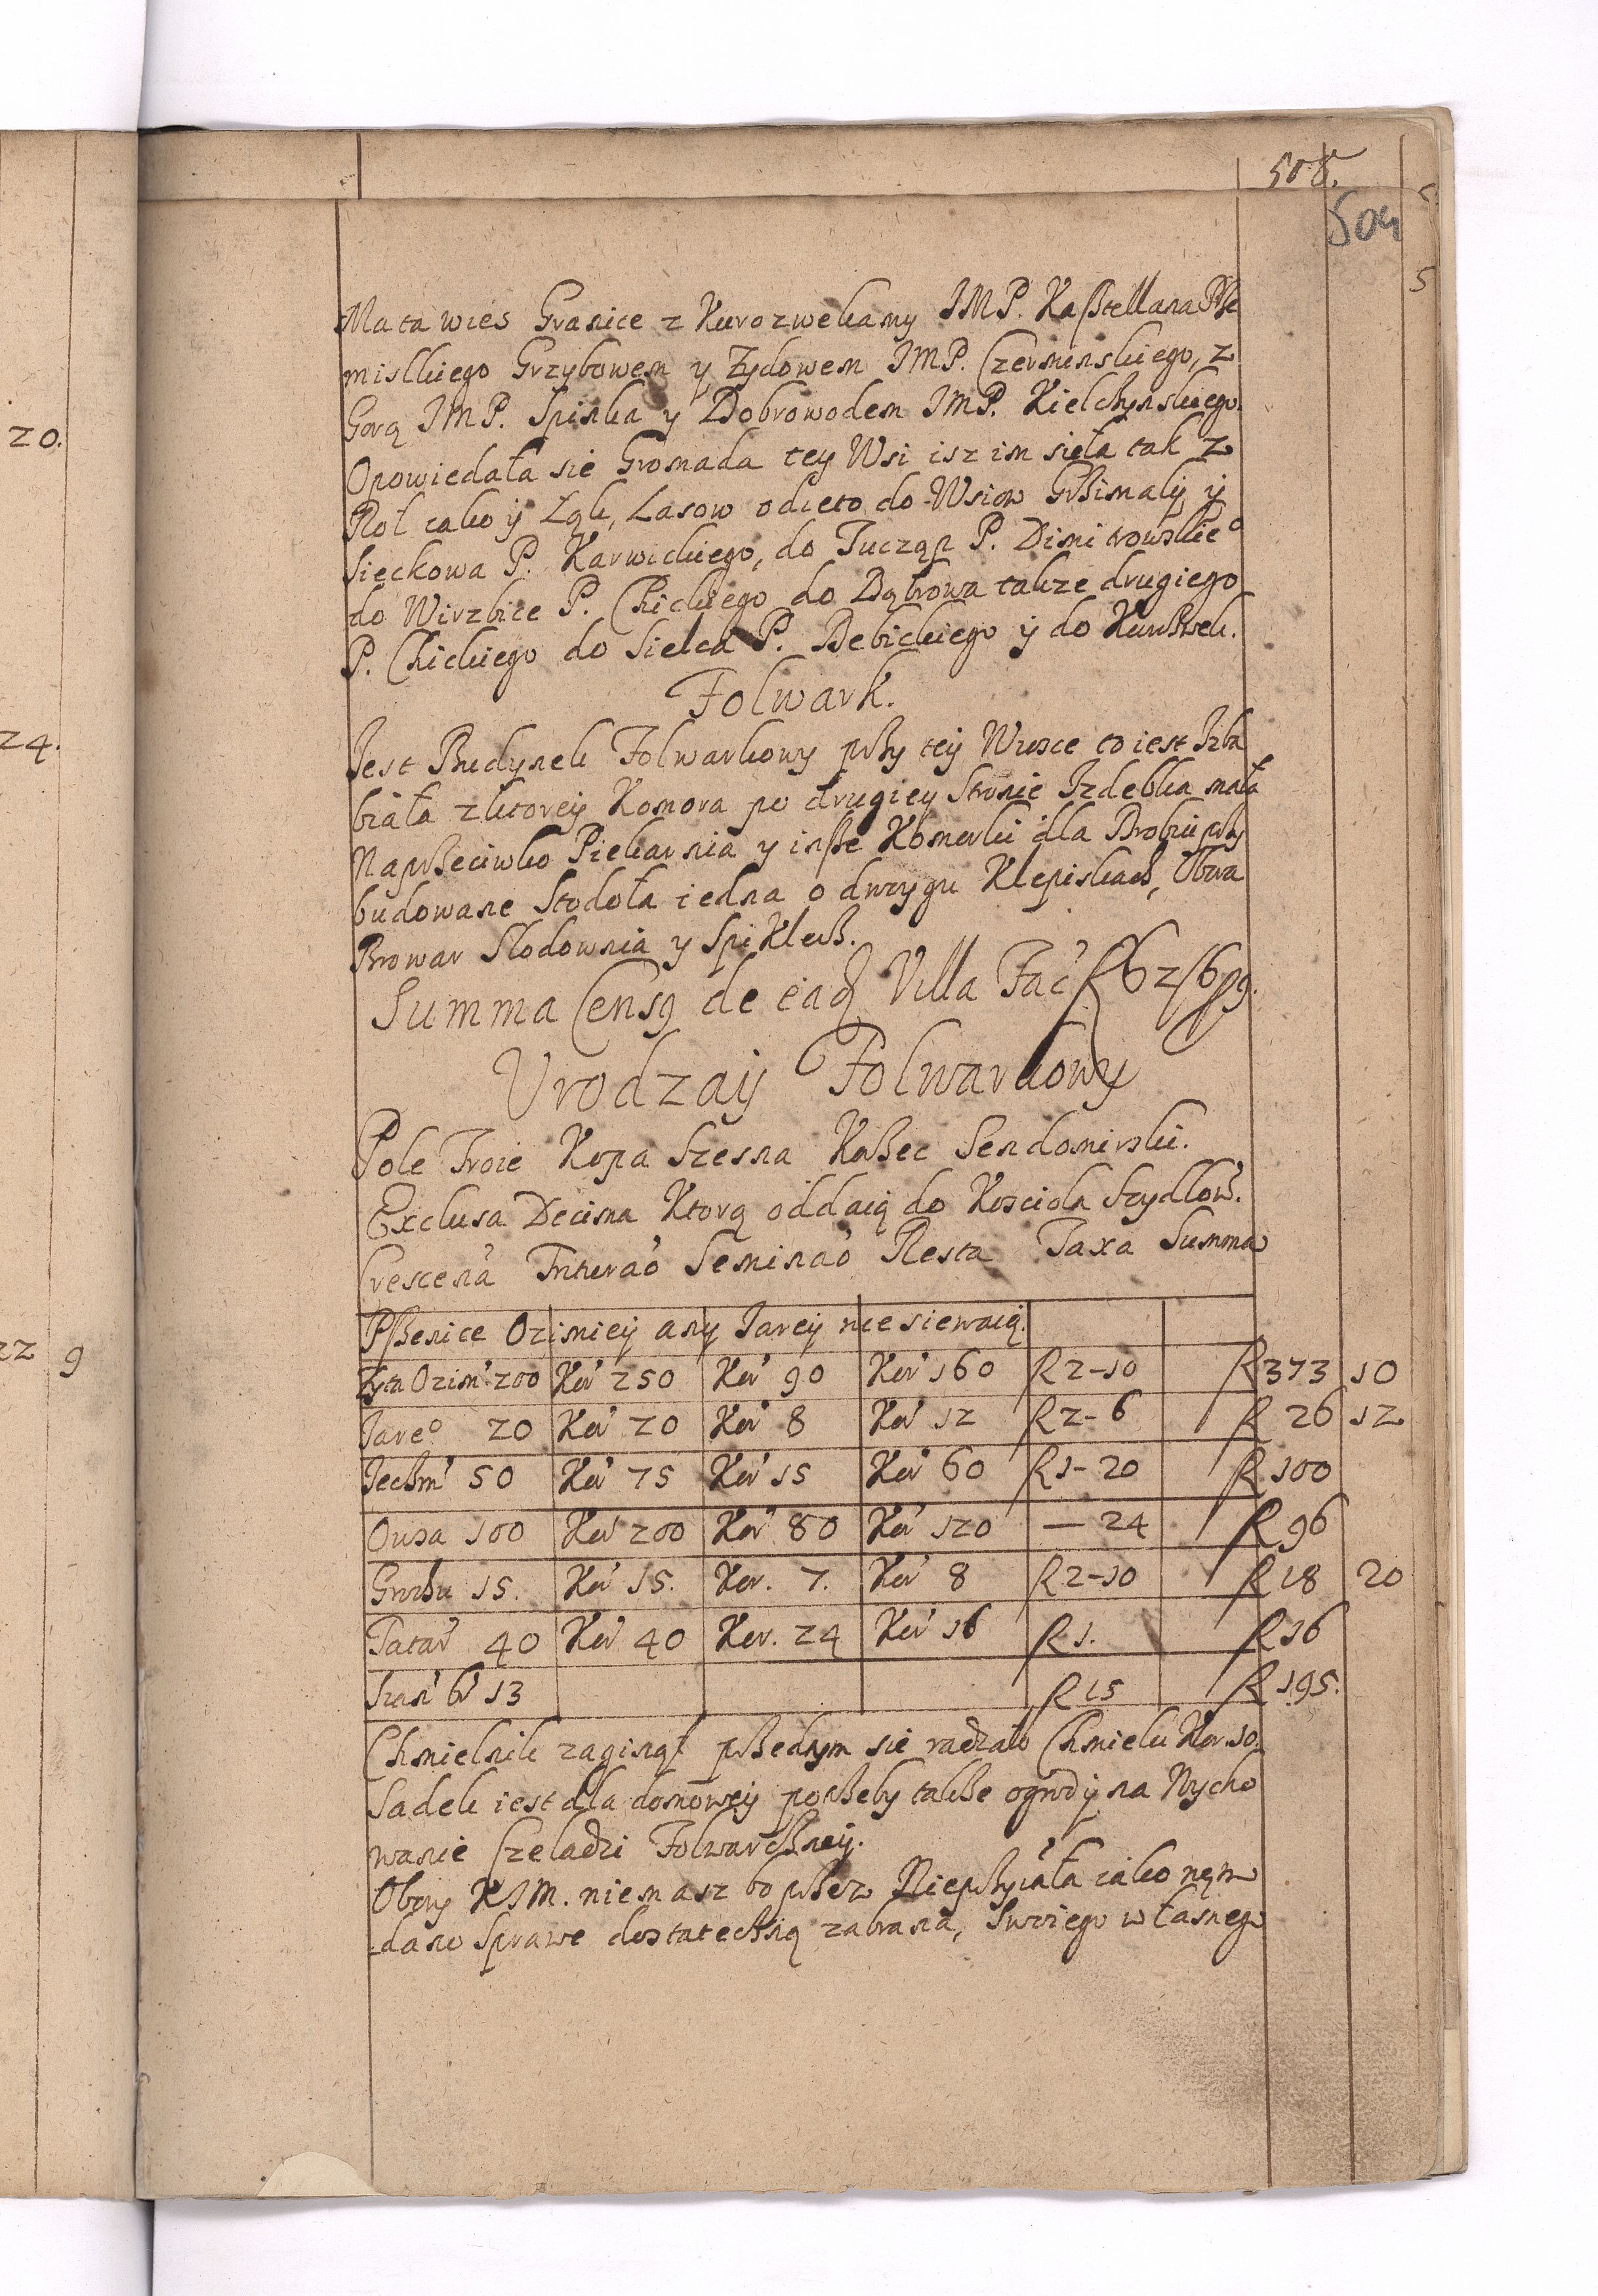 508.
504
Ma ta wies Granice z Kurozwekamy JMP. Kaßtellana Prze
mislkiego Grzybowem y Zydowem JMP. Czerminskiego, z
Gorą JMP. Spinka y Dobrowodem JMP. Kielchynskiego.
Opowiedała sie Gromada tey Wsi isz im siela tak z
Rol iako ÿ Łąk, Lasow odieto do Wsiow Grzimaly, ÿ
Sieckowa P. Karwickiego, do Tucząp P. Dimitrowskie°
do Wirzbice P. Chickiego do Dąbrowa takze drugiego
P. Chickiego do Sielca P. Debickiego ÿ do Kurozwek.
Folwark.
Jest Budynek Folwarkowy przy teÿ Wiosce to iest Izba
biała z ktoreÿ Komora po drugiey Stronie Izdebka mała
Naprzeciwko Piekarnia y inße Komorki dla Drobiu przy
budowane Stodoła iedna o dwoygu Klepiskach, Obora
Browar Słodownia y SpiKlerz.
Summa Censg de eadẽ Villa Fac' R 62/6/9.
Urodzaiÿ Folwarkowy
Pole Troie Kopa Szesna Korzec Sendomirski.
Exclusa Decima Ktorą oddaią do Kosciola Szydlow'.
Crescen' Triturao' Seminao' Resta Taxa Summa
Pßenice Ozimieÿ any Jareÿ nie siewaią.
Zyta Ozim' 200 Kor' 250 Kor' 90 Kor' 160 R 2-10 R 373 10
Jare° 20 Kor' 20 Kor' 8 Kor' 12 R 2-6 R 26 12
Jechm' 50 Kor' 75 Kor' 15 Kor' 60 R 1-20 R 100
Owsa 100 Kor' 200 Kor' 80 Kor' 120 — 24 R 96
Grochu 15. Kor' 15. Kor. 7. Kor' 8 R 2-10 R 18 20
Tatar' 40 Kor' 40 Kor. 24 Kor' 16 R 1. R 16
Sian' 13 R 15 R 195.
Chmielnik zaginął przedtym sie radzało Chmielu Kor. 10.
Sadek iest dla domoweÿ potrzeby takze ogrody na Wycho
wanie Czeladzi Folwarczneÿ.
Obory KJM. niemasz bo przez Nieprzyiaciela iako nąm
dano Sprawe dostateczną zabrana, Swoiego własnego
20.
24.
22 9
5